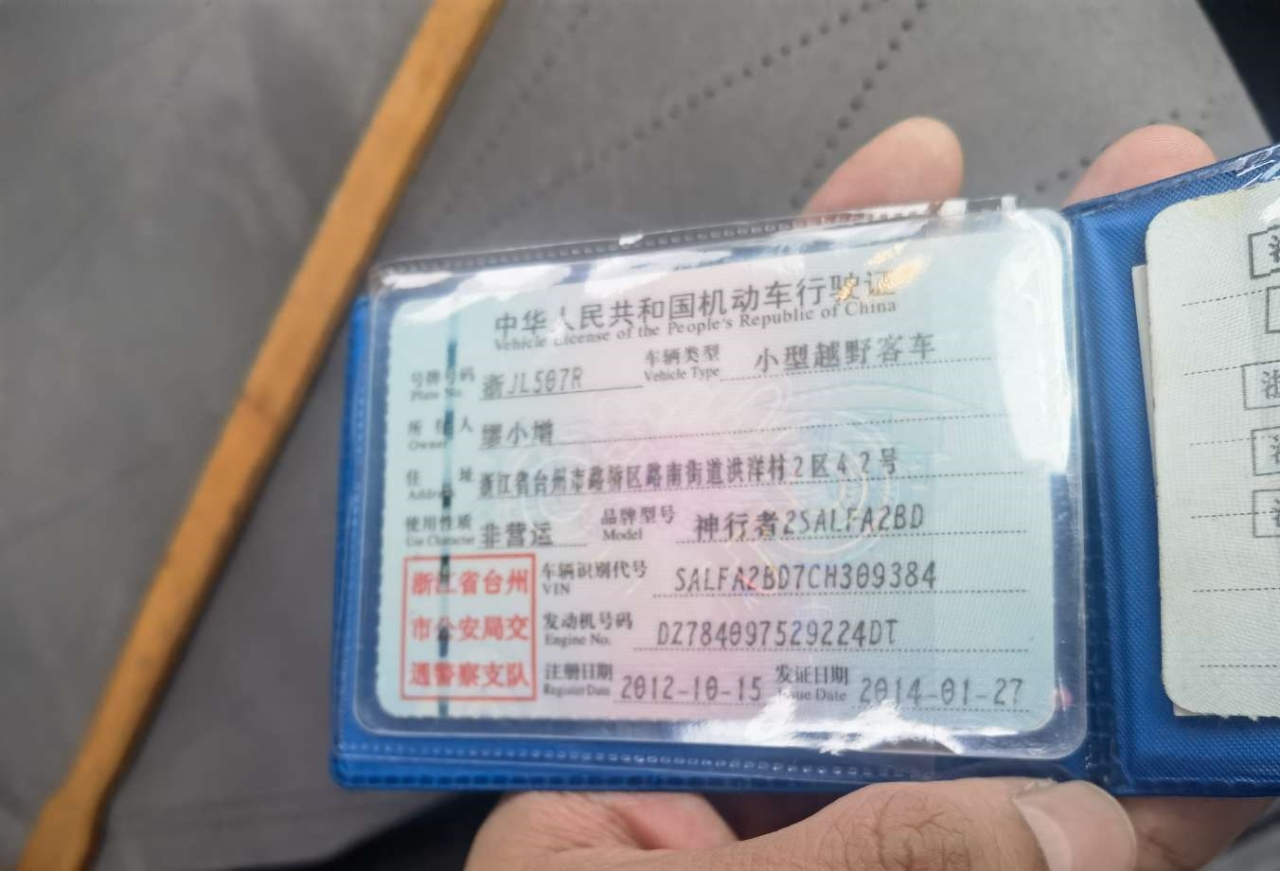 中华人民共和国机动车行驶证
Vehicle License of the People's Republic of China
号牌号码 浙JL507R 车辆类型 小型越野客车
Plate No. Vehicle Type
所有人 缪小增
Owner
住址 浙江省台州市路桥区路南街道洪洋村2区42号
Address
使用性质 非营运 品牌型号 神行者2SALFA2BD
Use Character Model
浙江省台州 车辆识别代号 SALFA2BD7CH309384
VIN
市公安局交 发动机号码 DZ784097529224DT
Engine No.
通警察支队 注册日期 2012-10-15 发证日期 2014-01-27
Register Date Issue Date